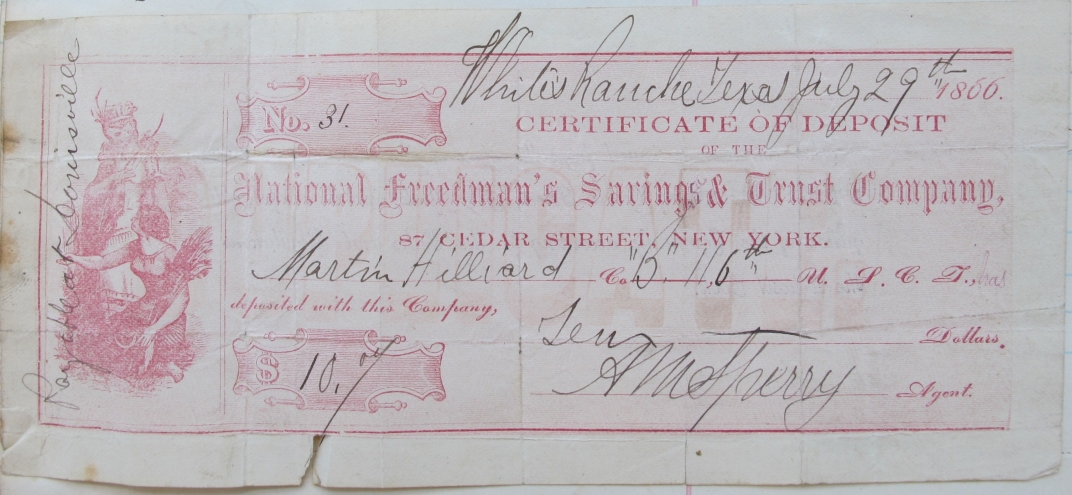 White's Ranche, Texas July 29th 1866.
No. 31.
CERTIFICATE OF DEPOSIT
OF THE
National Freedman's Savings & Trust Company,
87 CEDAR STREET, NEW YORK.
Martin Hilliard Co. "B" 116th U. S. C. T., has
deposited with this Company,
Ten Dollars.
$ 10.
A M Sperry Agent.
Pay at Louisville